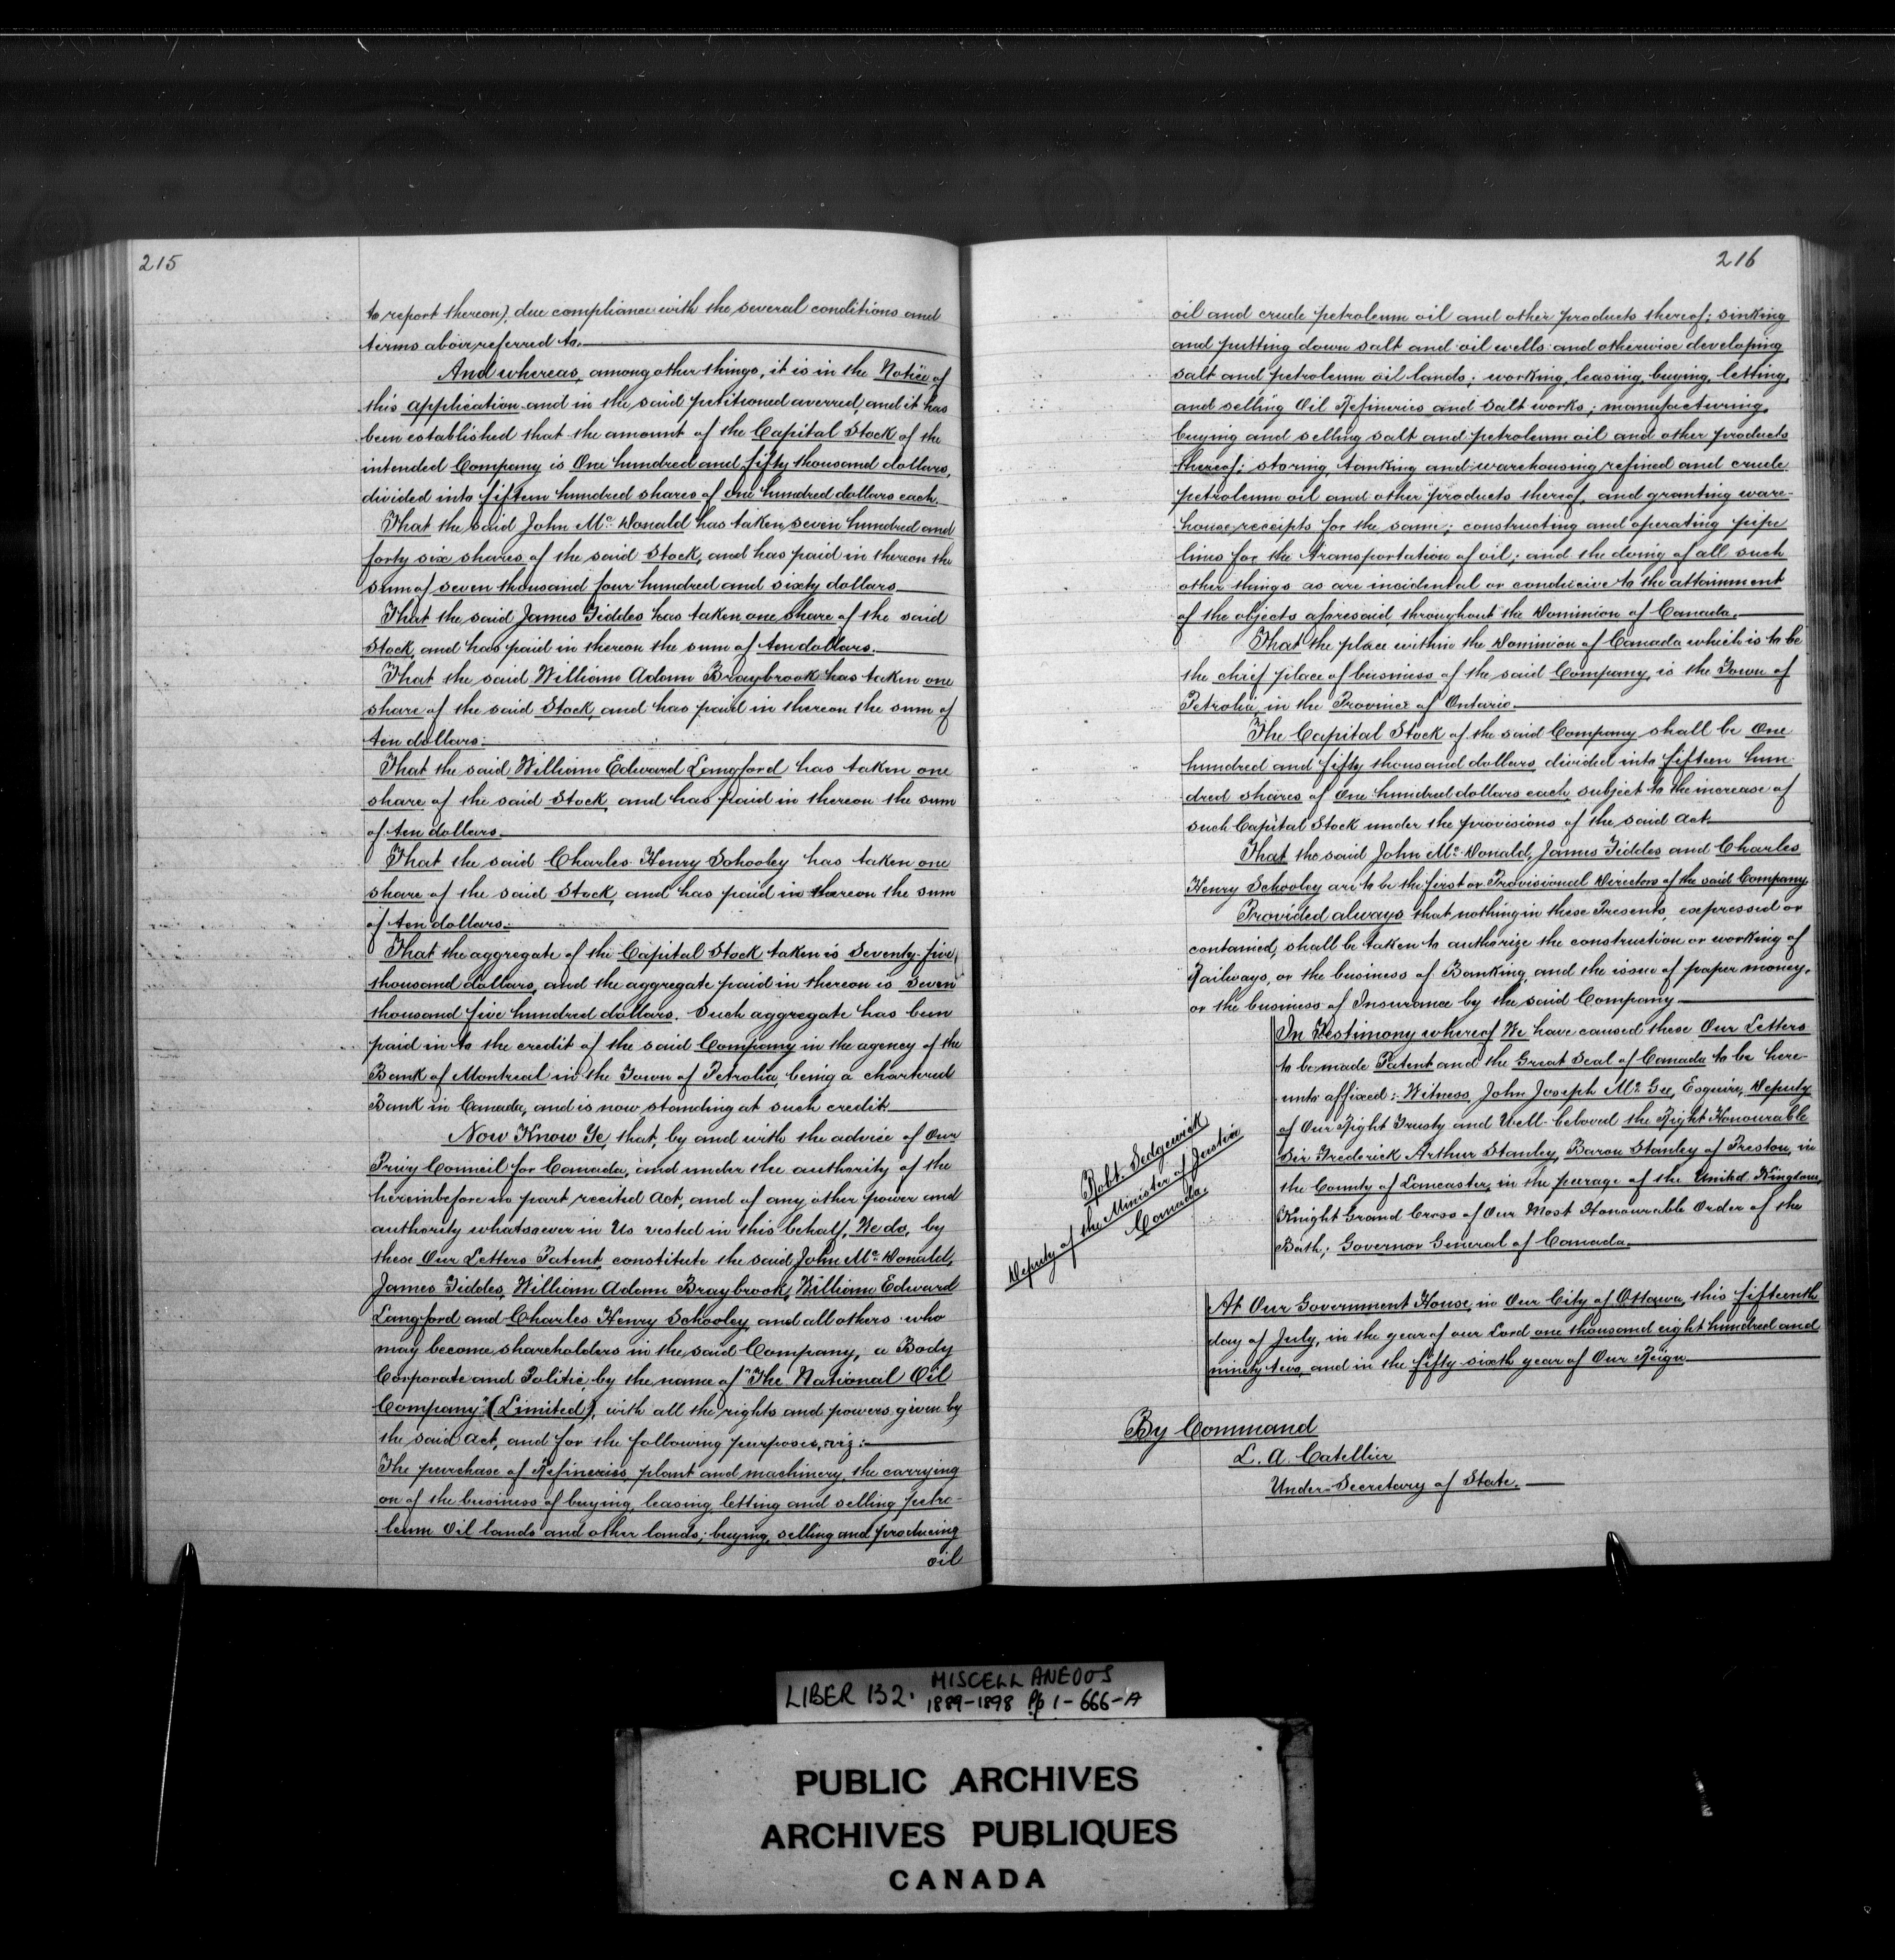 215
to report thereon), due compliance with the several conditions and
terms above referred to.
And whereas, among other things, it is in the Notice of
this application and in the said petitioned averred, and it has
been established that the amount of the Capital Stock of the
intended Company is One hundred and fifty thousand dollars,
divided into fifteen hundred shares of one hundred dollars each.
That the said John Mc. Donald has taken seven hundred and
forty six shares of the said Stock, and has paid in thereon the
sum of seven thousand four hundred and sixty dollars
That the said James Fiddes has taken one share of the said
Stock, and has paid in thereon the sum of ten dollars.
That the said William Adam Braybrook has taken one
share of the said Stock, and has paid in thereon the sum of
ten dollars.
That the said William Edward Langford has taken one
share of the said Stock, and has paid in thereon the sum
of ten dollars.
That the said Charles Henry Schooley has taken one
share of the said Stock, and has paid in thereon the sum
of ten dollars.
That the aggregate of the Capital Stock taken is Seventy-five
thousand dollars, and the aggregate paid in thereon is seven
thousand five hundred dollars. Such aggregate has been
paid in to the credit of the said Company in the agency of the
Bank of Montreal in the Town of Petrolia, being a chartered
Bank in Canada, and is now standing at such credit.
Now Know Ye, that, by and with the advice of Our
Privy Council for Canada, and under the authority of the
hereinbefore in part recited Act, and of any other power and
authority whatsoever in Us vested in this behalf, We do, by
these Our Letters Patent, constitute the said John Mc. Donald,
James Fiddes, William Adam Braybrook, William Edward
Langford and Charles Henry Schooley and all others who
may become shareholders in the said Company, a Body
Corporate and Politic, by the name of "The National Oil
Company" (Limited), with all the rights and powers given by
the said Act, and for the following purposes, viz:
The purchase of Refineries, plant and machinery, the carrying
on of the business of buying, leasing, letting and selling petro-
leum Oil lands and other lands; buying, selling and producing
oil
216
oil and crude petroleum oil and other products thereof; sinking
and putting down salt and oil wells and otherwise developing
salt and petroleum oil lands; working, leasing, buying, letting,
and selling Oil Refineries and Salt works; manufacturing,
buying and selling salt and petroleum oil and other products
thereof; storing, tanking and warehousing refined and crude
petroleum oil and other products thereof, and granting ware-
house receipts for the same; constructing and operating pipe
lines for the transportation of oil; and the doing of all such
other things as are incidental or conducive to the attainment
of the objects aforesaid throughout the Dominion of Canada.
That the place within the Dominion of Canada which is to be
the chief place of business of the said Company, is the Town of
Petrolia, in the Province of Ontario.
The Capital Stock of the said Company shall be One
hundred and fifty thousand dollars, divided into fifteen hun-
dred shares of One hundred dollars each, subject to the increase of
such Capital Stock under the provisions of the said Act.
That the said John Mc. Donald, James Fiddes and Charles
Henry Schooley are to be the first or Provisional Directors of the said Company
Provided always that nothing in these Presents, expressed or
contained, shall be taken to authorize the construction or working of
Railways, or the business of Banking, and the issue of paper money,
or the business of Insurance by the said Company
In Testimony whereof We have caused these Our Letters
to be made Patent and the Great Seal of Canada to be here-
unto affixed: Witness, John Joseph Mc. Gee, Esquire, Deputy
of Our Right Trusty and Well-beloved the Right Honourable
Sir Frederick Arthur Stanley, Baron Stanley of Preston, in
the County of Lancaster, in the peerage of the United Kingdom,
Knight Grand Cross of Our Most Honourable Order of the
Bath; Governor General of Canada.
Robt. Sedgewick
Deputy of the Minister of Justice
Canada.
At Our Government House, in Our City of Ottawa, this fifteenth
day of July, in the year of our Lord one thousand eight hundred and
ninety two, and in the fifty sixth year of Our Reign
By Command
L. A. Catellier
Under-Secretary of State.
LIBER 132. MISCELLANEOUS
1889-1898 Pp 1-666-A
PUBLIC ARCHIVES
ARCHIVES PUBLIQUES
CANADA